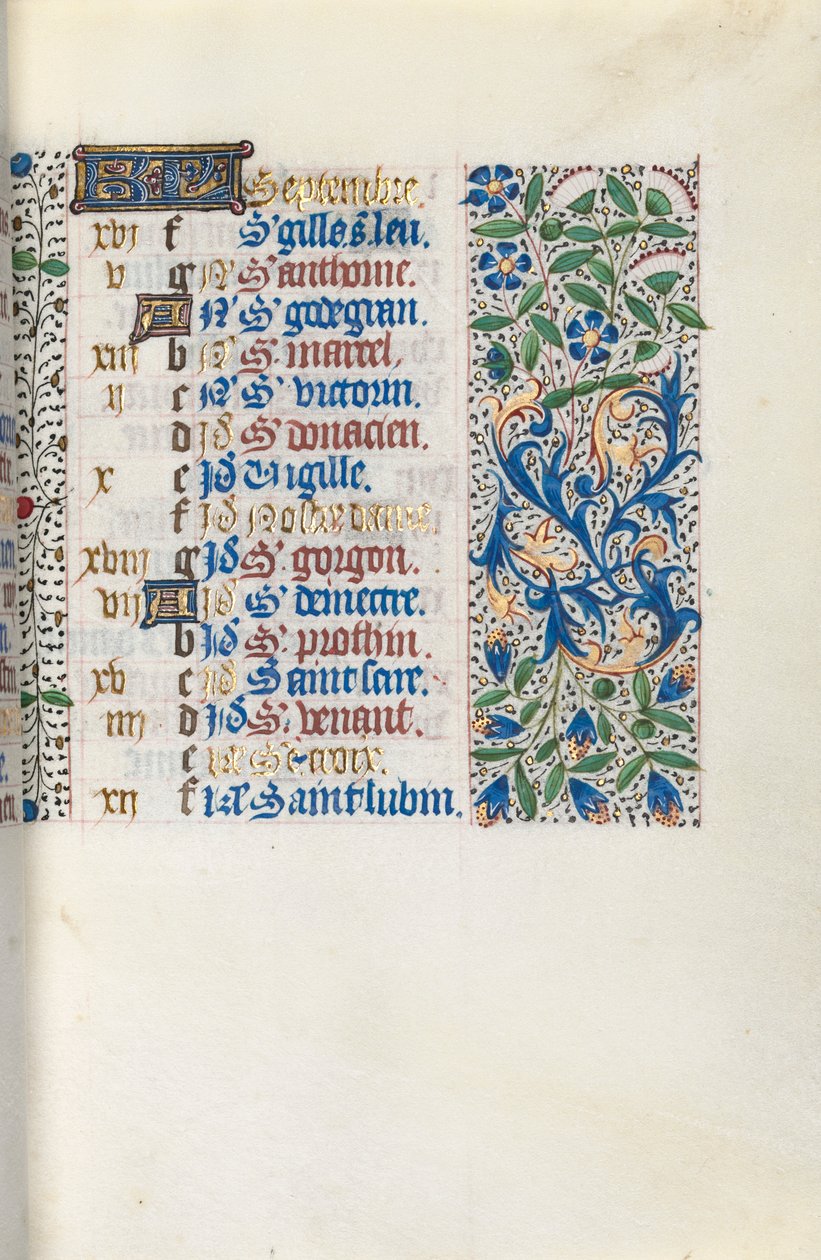 KL Septembre.
xvj f S' gille s. leu.
v g N' S' anthoine.
A N' S' godegran.
xiij b N' S' marcel.
ij c N' S' victorin.
d Jd S' donacien.
x e Jd Vigille.
f Jd Nostre dame.
xviij g Jd S' gorgon.
vij A Jd S' demectre.
b Jd S' prothin.
xv c Jd Saint sire.
iiij d Jd S' venant.
e kl Ste croix.
xij f kl Saint lubin.